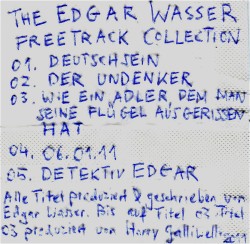 THE EDGAR WASSER
FREETRACK COLLECTION
01. DEUTSCHSEIN
02. DER UNDENKER
03. WIE EIN ADLER DEM MAN
SEINE FLÜGEL AUSGERISSEN
HAT
04. 06.01.11
05. DETEKTIV EDGAR
Alle Titel produziert & geschrieben von
Edgar Wasser. Bis auf Titel 03. Titel
03 produziert von Harry
2011